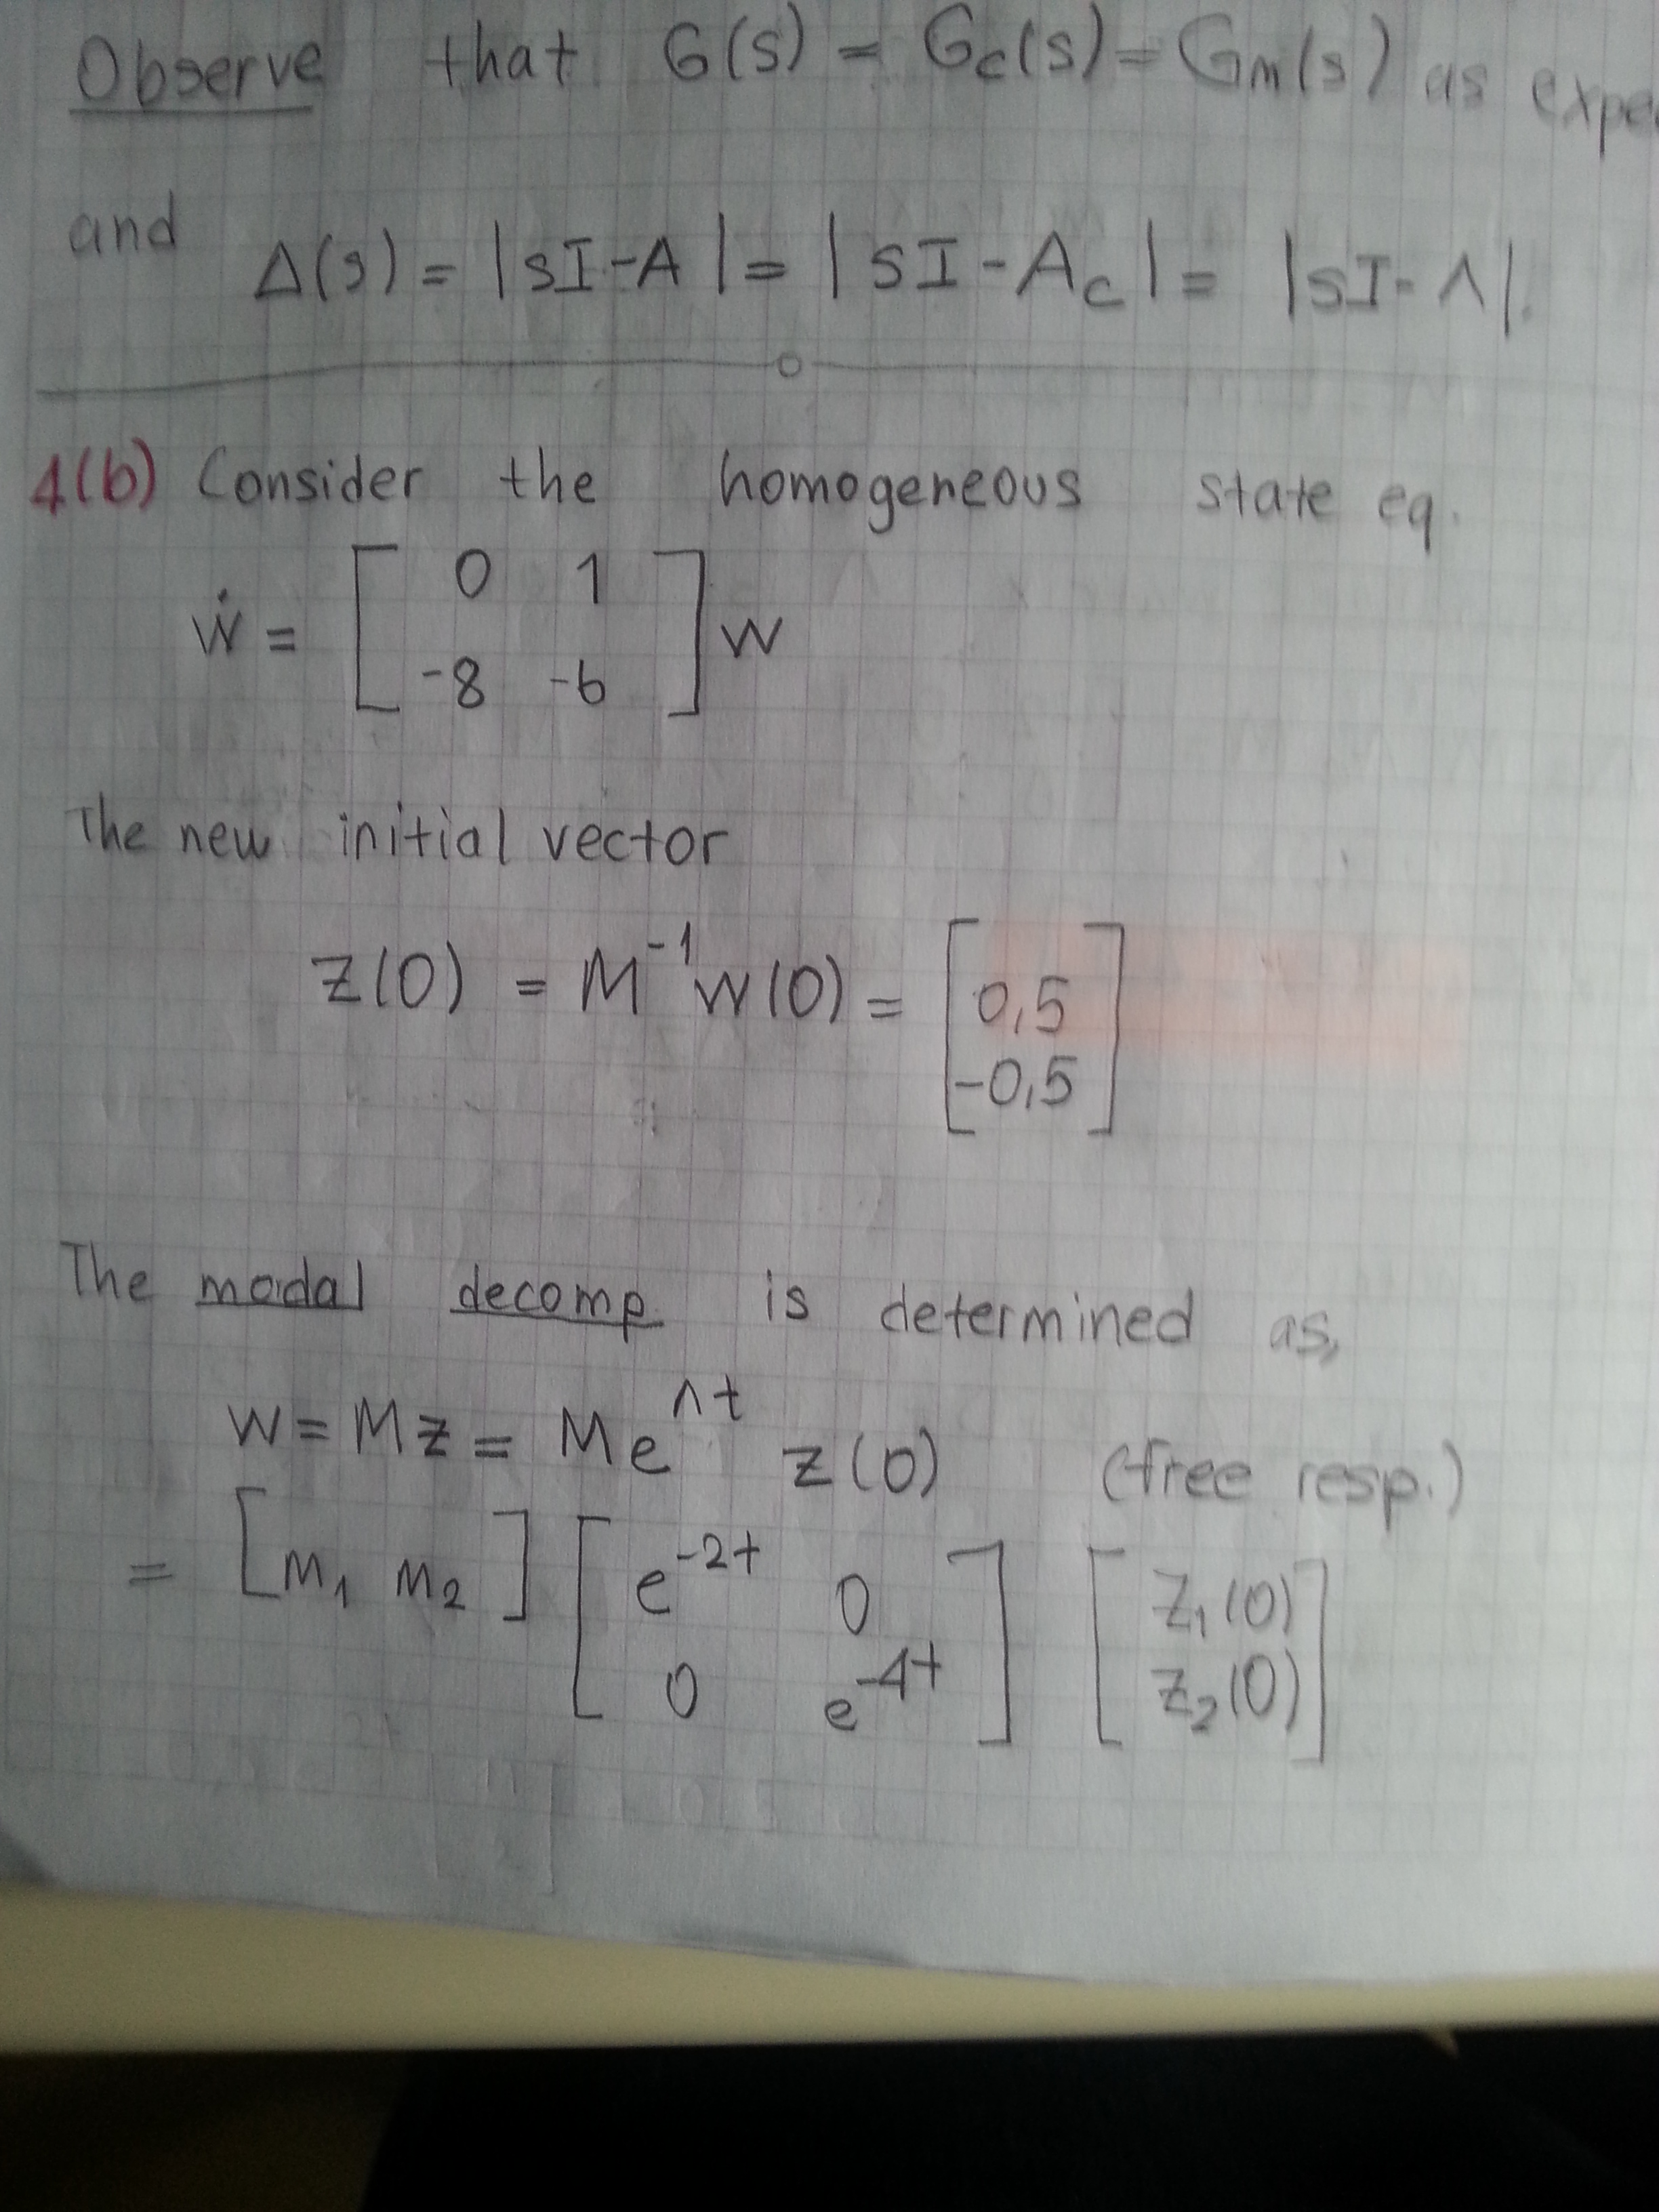 Observe that G(s) = Gc(s) = Gm(s) as
and Δ(s) = |sI-A| = |sI-Ac| = |sI-Λ|.
4(b) Consider the homogeneous state eq.
ẇ = [0 1
-8 -6] w
The new initial vector
z(0) = M⁻¹w(0) = [0,5
-0,5]
The modal decomp. is determined as,
w = Mz = Me^Λt z(0) (free resp.)
= [m₁ m₂] [e^-2t 0
0 e^-4t] [z₁(0)
z₂(0)]